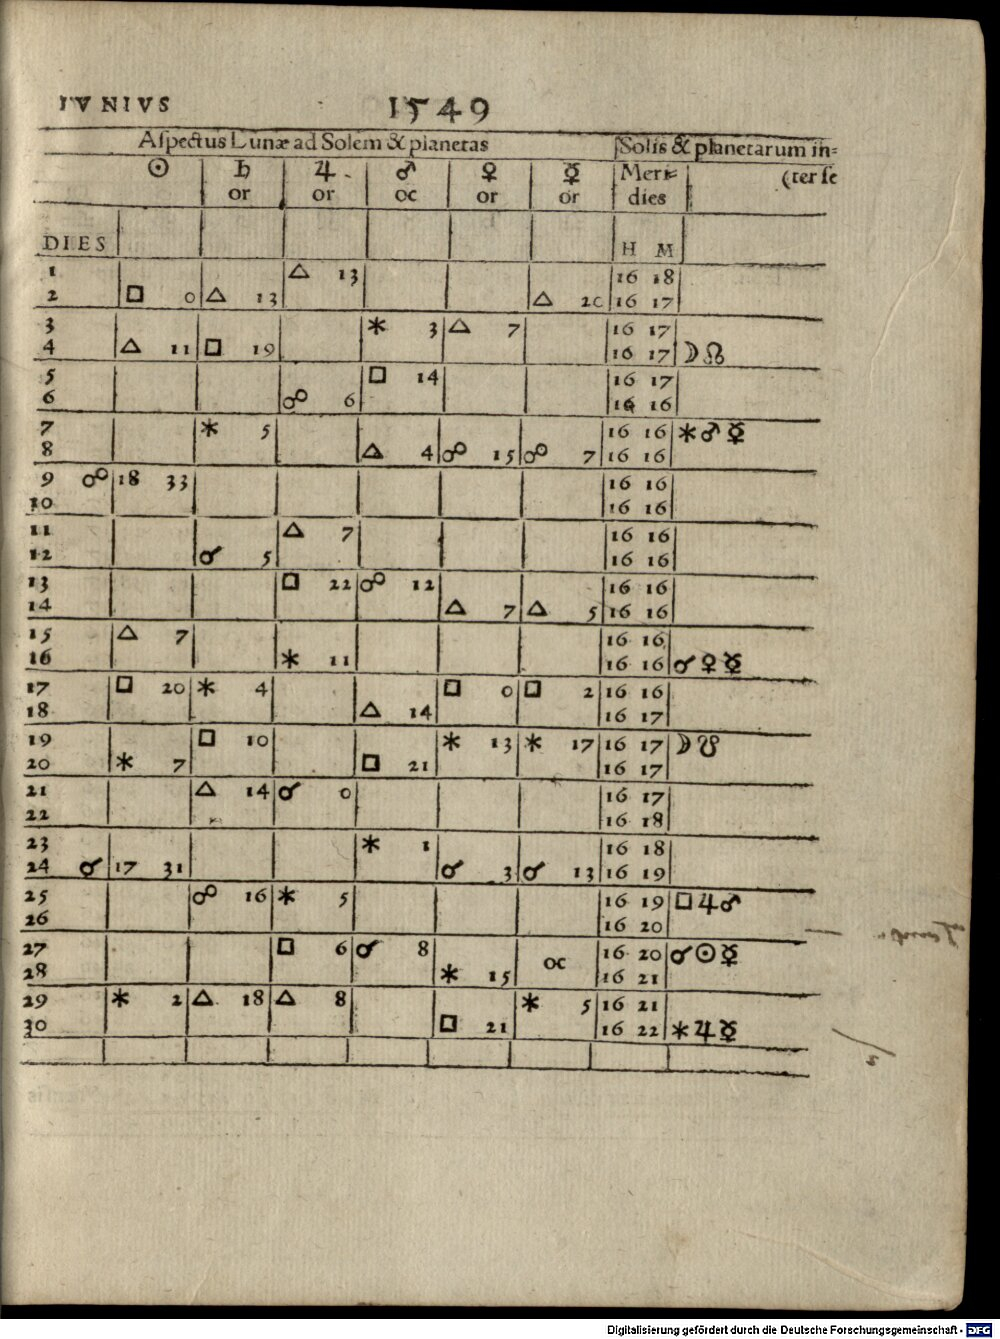 IVNIVS 1549
Aſpectus Lunæ ad Solem & planetas Solis & planetarum in=
☉ ♄ ♃ ♂ ♀ ☿ Meri= (ter ſe
or or oc or or dies
DIES H M
1 △ 13 16 18
2 □ 0 △ 13 △ 20 16 17
3 ⚹ 3 △ 7 16 17
4 △ 11 □ 19 16 17 ☽ ☊
5 □ 14 16 17
6 ☍ 6 16 16
7 ⚹ 5 16 16 ⚹ ♂ ☿
8 △ 4 ☍ 15 ☍ 7 16 16
9 ☍ 18 33 16 16
10 16 16
11 △ 7 16 16
12 ☌ 5 16 16
13 □ 22 ☍ 12 16 16
14 △ 7 △ 5 16 16
15 △ 7 16 16
16 ⚹ 11 16 16 ☌ ♀ ☿
17 □ 20 ⚹ 4 □ 0 □ 2 16 16
18 △ 14 16 17
19 □ 10 ⚹ 13 ⚹ 17 16 17 ☽ ☋
20 ⚹ 7 □ 21 16 17
21 △ 14 ☌ 0 16 17
22 16 18
23 ⚹ 1 16 18
24 ☌ 17 31 ☌ 3 ☌ 13 16 19
25 ☍ 16 ⚹ 5 16 19 □ ♃ ♂
26 16 20
27 □ 6 ☌ 8 oc 16 20 ☌ ☉ ☿
28 ⚹ 15 16 21
29 ⚹ 2 △ 18 △ 8 ⚹ 5 16 21
30 □ 21 16 22 ⚹ ♃ ☿
Digitalisierung gefördert durch die Deutsche Forschungsgemeinschaft - DFG